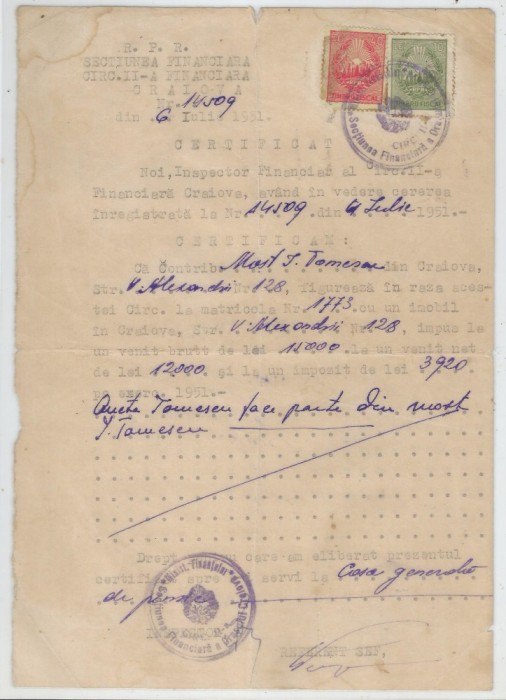 R. P. R.
SECTIUNEA FINANCIARA
CIRC.II-A FINANCIARA
C R A I O V A
Nr. 14509
din 6 Iulie 1951.
C E R T I F I C A T
Noi, Inspector Financiar al Circ.II-a
Financiară Craiova, având în vedere cererea
înregistrată la Nr. 14509 .din 6 Iulie 1951.-
C E R T I F I C A M :
Că Contrib. Moșt I. Tomescu din Craiova,
Str. V. Alexandri Nr. 128, figurează în raza aces-
tei Circ. la matricola Nr. 1773 .cu un imobil
în Craiova, Str. V. Alexandri 128 Nr. impus la
un venit brutt de lei 15000 .la un venit net
de lei 12000 și la un impozit de lei 3920
pe exerc. 1951.-
Aneta Tomescu face parte din moșt
I. Tomescu
Drept care am eliberat prezentul
certificat spre servi la Casa generală
de pensii
REFERENT SEF,